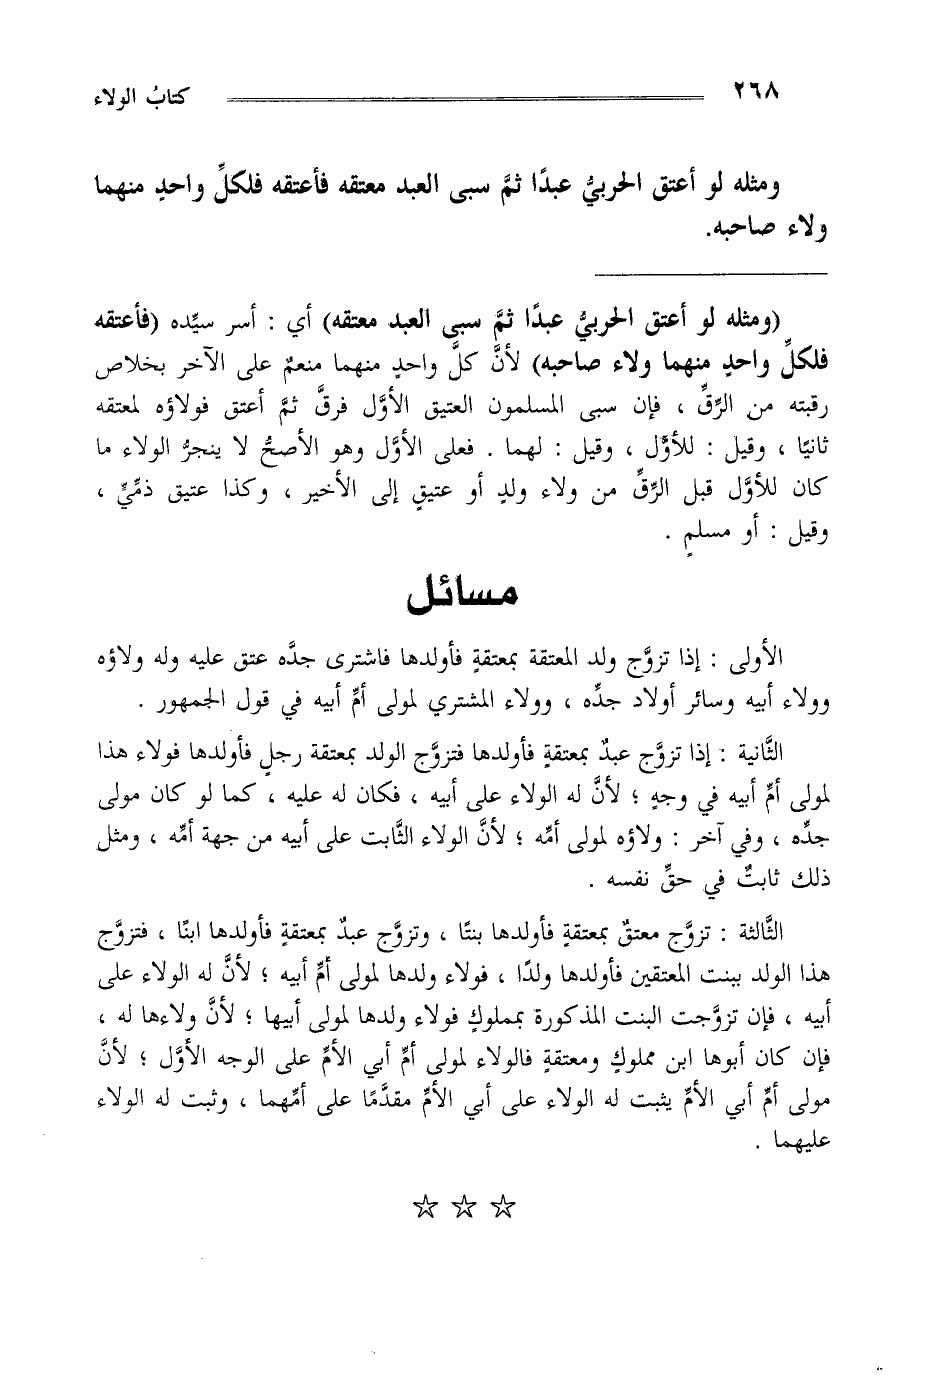 ٢٦٨
كتابُ الولاء
ومثله لو أعتق الحربيُّ عبدًا ثمَّ سبى العبد معتقه فأعتقه فلكلِّ واحدٍ منهما
ولاء صاحبه.
(ومثله لو أعتق الحربيُّ عبدًا ثمَّ سبى العبد معتقه) أي : أسر سيِّده (فأعتقه
فلكلِّ واحدٍ منهما ولاء صاحبه) لأنَّ كلَّ واحدٍ منهما منعمٌ على الآخر بخلاص
رقبته من الرِّقِّ ، فإن سبى المسلمون العتيق الأوَّل فرقَّ ثمَّ أعتق فولاؤه لمعتقه
ثانيًا ، وقيل : للأوَّل ، وقيل : لهما . فعلى الأوَّل وهو الأصحُّ لا ينجرُّ الولاء ما
كان للأوَّل قبل الرِّقِّ من ولاء ولدٍ أو عتيقٍ إلى الأخير ، وكذا عتيق ذمِّيٍّ ،
وقيل : أو مسلمٍ .
مسائل
الأولى : إذا تزوَّج ولد المعتقة بمعتقةٍ فأولدها فاشترى جدَّه عتق عليه وله ولاؤه
وولاء أبيه وسائر أولاد جدِّه ، وولاء المشتري لمولى أمِّ أبيه في قول الجمهور .
الثَّانية : إذا تزوَّج عبدٌ بمعتقةٍ فأولدها فتزوَّج الولد بمعتقة رجلٍ فأولدها فولاء هذا
لمولى أمِّ أبيه في وجهٍ ؛ لأنَّ له الولاء على أبيه ، فكان له عليه ، كما لو كان مولى
جدِّه ، وفي آخر : ولاؤه لمولى أمِّه ؛ لأنَّ الولاء الثَّابت على أبيه من جهة أمِّه ، ومثل
ذلك ثابتٌ في حقِّ نفسه .
الثَّالثة : تزوَّج معتقٌ بمعتقةٍ فأولدها بنتًا ، وتزوَّج عبدٌ بمعتقةٍ فأولدها ابنًا ، فتزوَّج
هذا الولد ببنت المعتقين فأولدها ولدًا ، فولاء ولدها لمولى أمِّ أبيه ؛ لأنَّ له الولاء على
أبيه ، فإن تزوَّجت البنت المذكورة بمملوكٍ فولاء ولدها لمولى أبيها ؛ لأنَّ ولاءها له ،
فإن كان أبوها ابن مملوكٍ ومعتقةٍ فالولاء لمولى أمِّ أبي الأمِّ على الوجه الأوَّل ؛ لأنَّ
مولى أمِّ أبي الأمِّ يثبت له الولاء على أبي الأمِّ مقدَّمًا على أمِّهما ، وثبت له الولاء
عليهما .